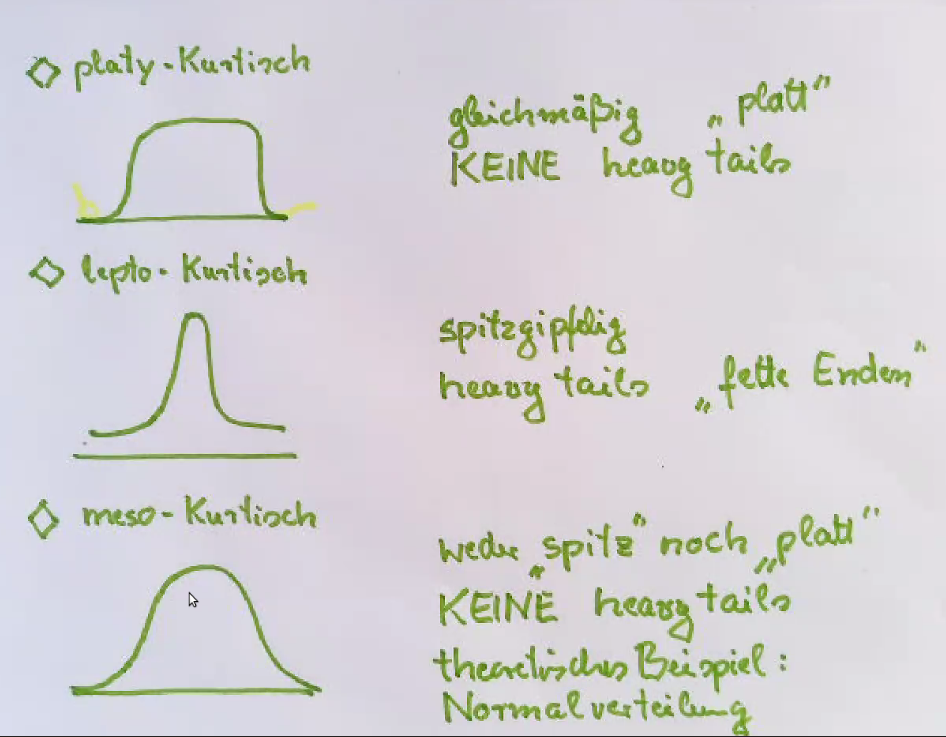 platy-Kurtisch
gleichmäßig „platt"
KEINE heavy tails
lepto-Kurtisch
spitzgipfelig
heavy tails „fette Enden"
meso-Kurtisch
weder „spitz" noch „platt"
KEINE heavy tails
theoretisches Beispiel:
Normalverteilung